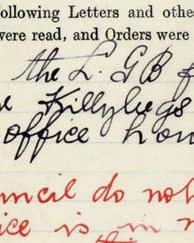 following Letters and othe
were read, and Orders were
the L. G B f
Killybegs
office hou
uncil do not
ice is in